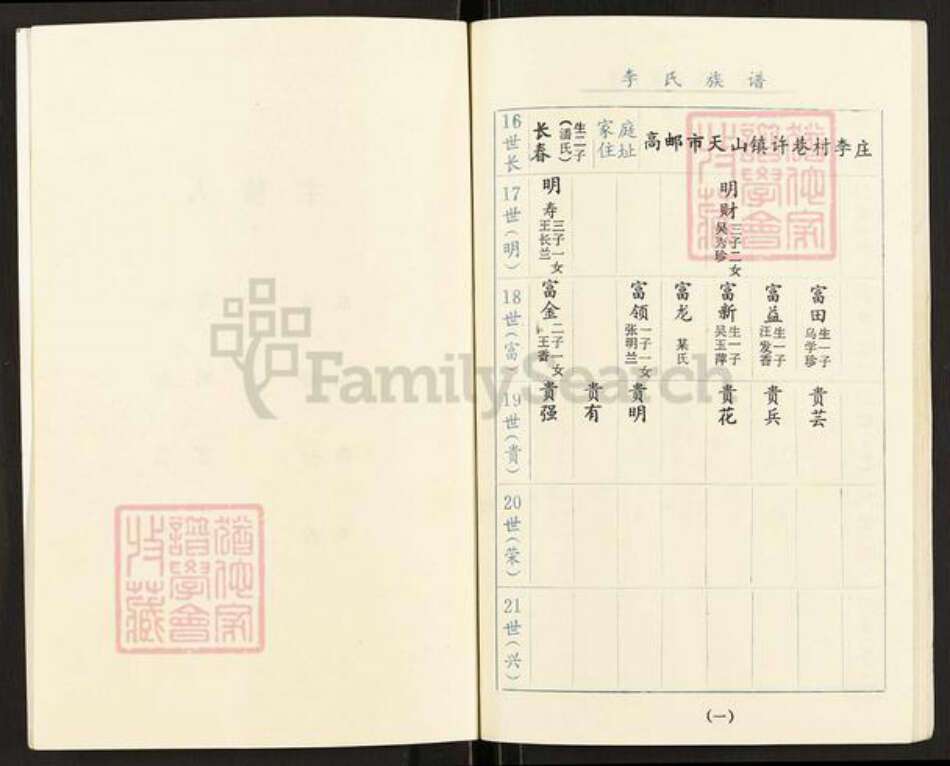 李氏族谱
16世长
长春
(潘氏)
生二子
家庭住址
高邮市天山镇许巷村李庄
17世(明)
明寿
王长兰
三子一女
明财
吴秀珍
三子二女
18世(富)
富金
王香
二子一女
富领
张明兰
一子一女
富龙
某氏
富新
吴玉萍
生一子
富益
汪发香
生一子
富田
乌学珍
生一子
19世(贵)
贵强
贵有
贵明
贵花
贵兵
贵芸
20世(荣)
21世(兴)
(一)
FamilySearch
譜學會
收藏
譜學會
收藏